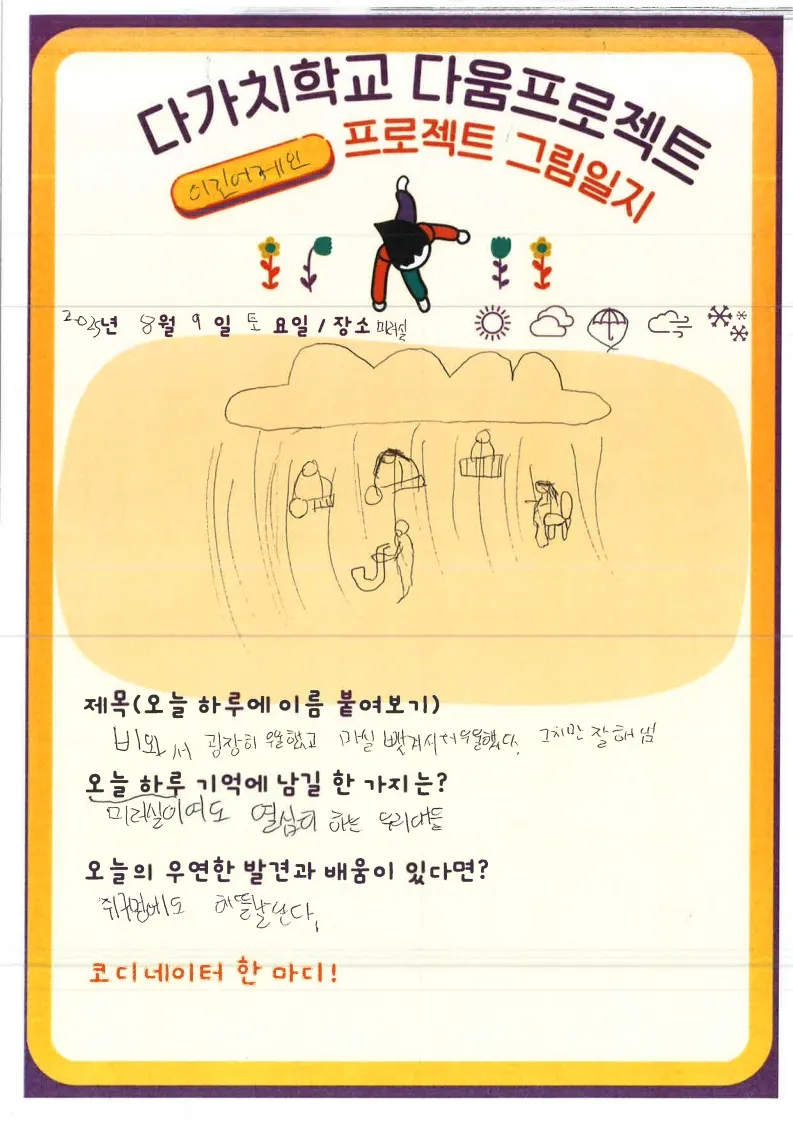 다가치학교 다움프로젝트
프로젝트 그림일지
2025년 8월 9일 토요일 / 장소 미러실
제목(오늘 하루에 이름 붙여보기)
비와서 굉장히 우울했고 마실 뺏겨서 더 우울했다. 그치만 잘 해냄
오늘 하루 기억에 남길 한 가지는?
미러실이여도 열심히 하는 우리애들
오늘의 우연한 발견과 배움이 있다면?
쥐구멍에도 해뜰날 난다.
코디네이터 한 마디!